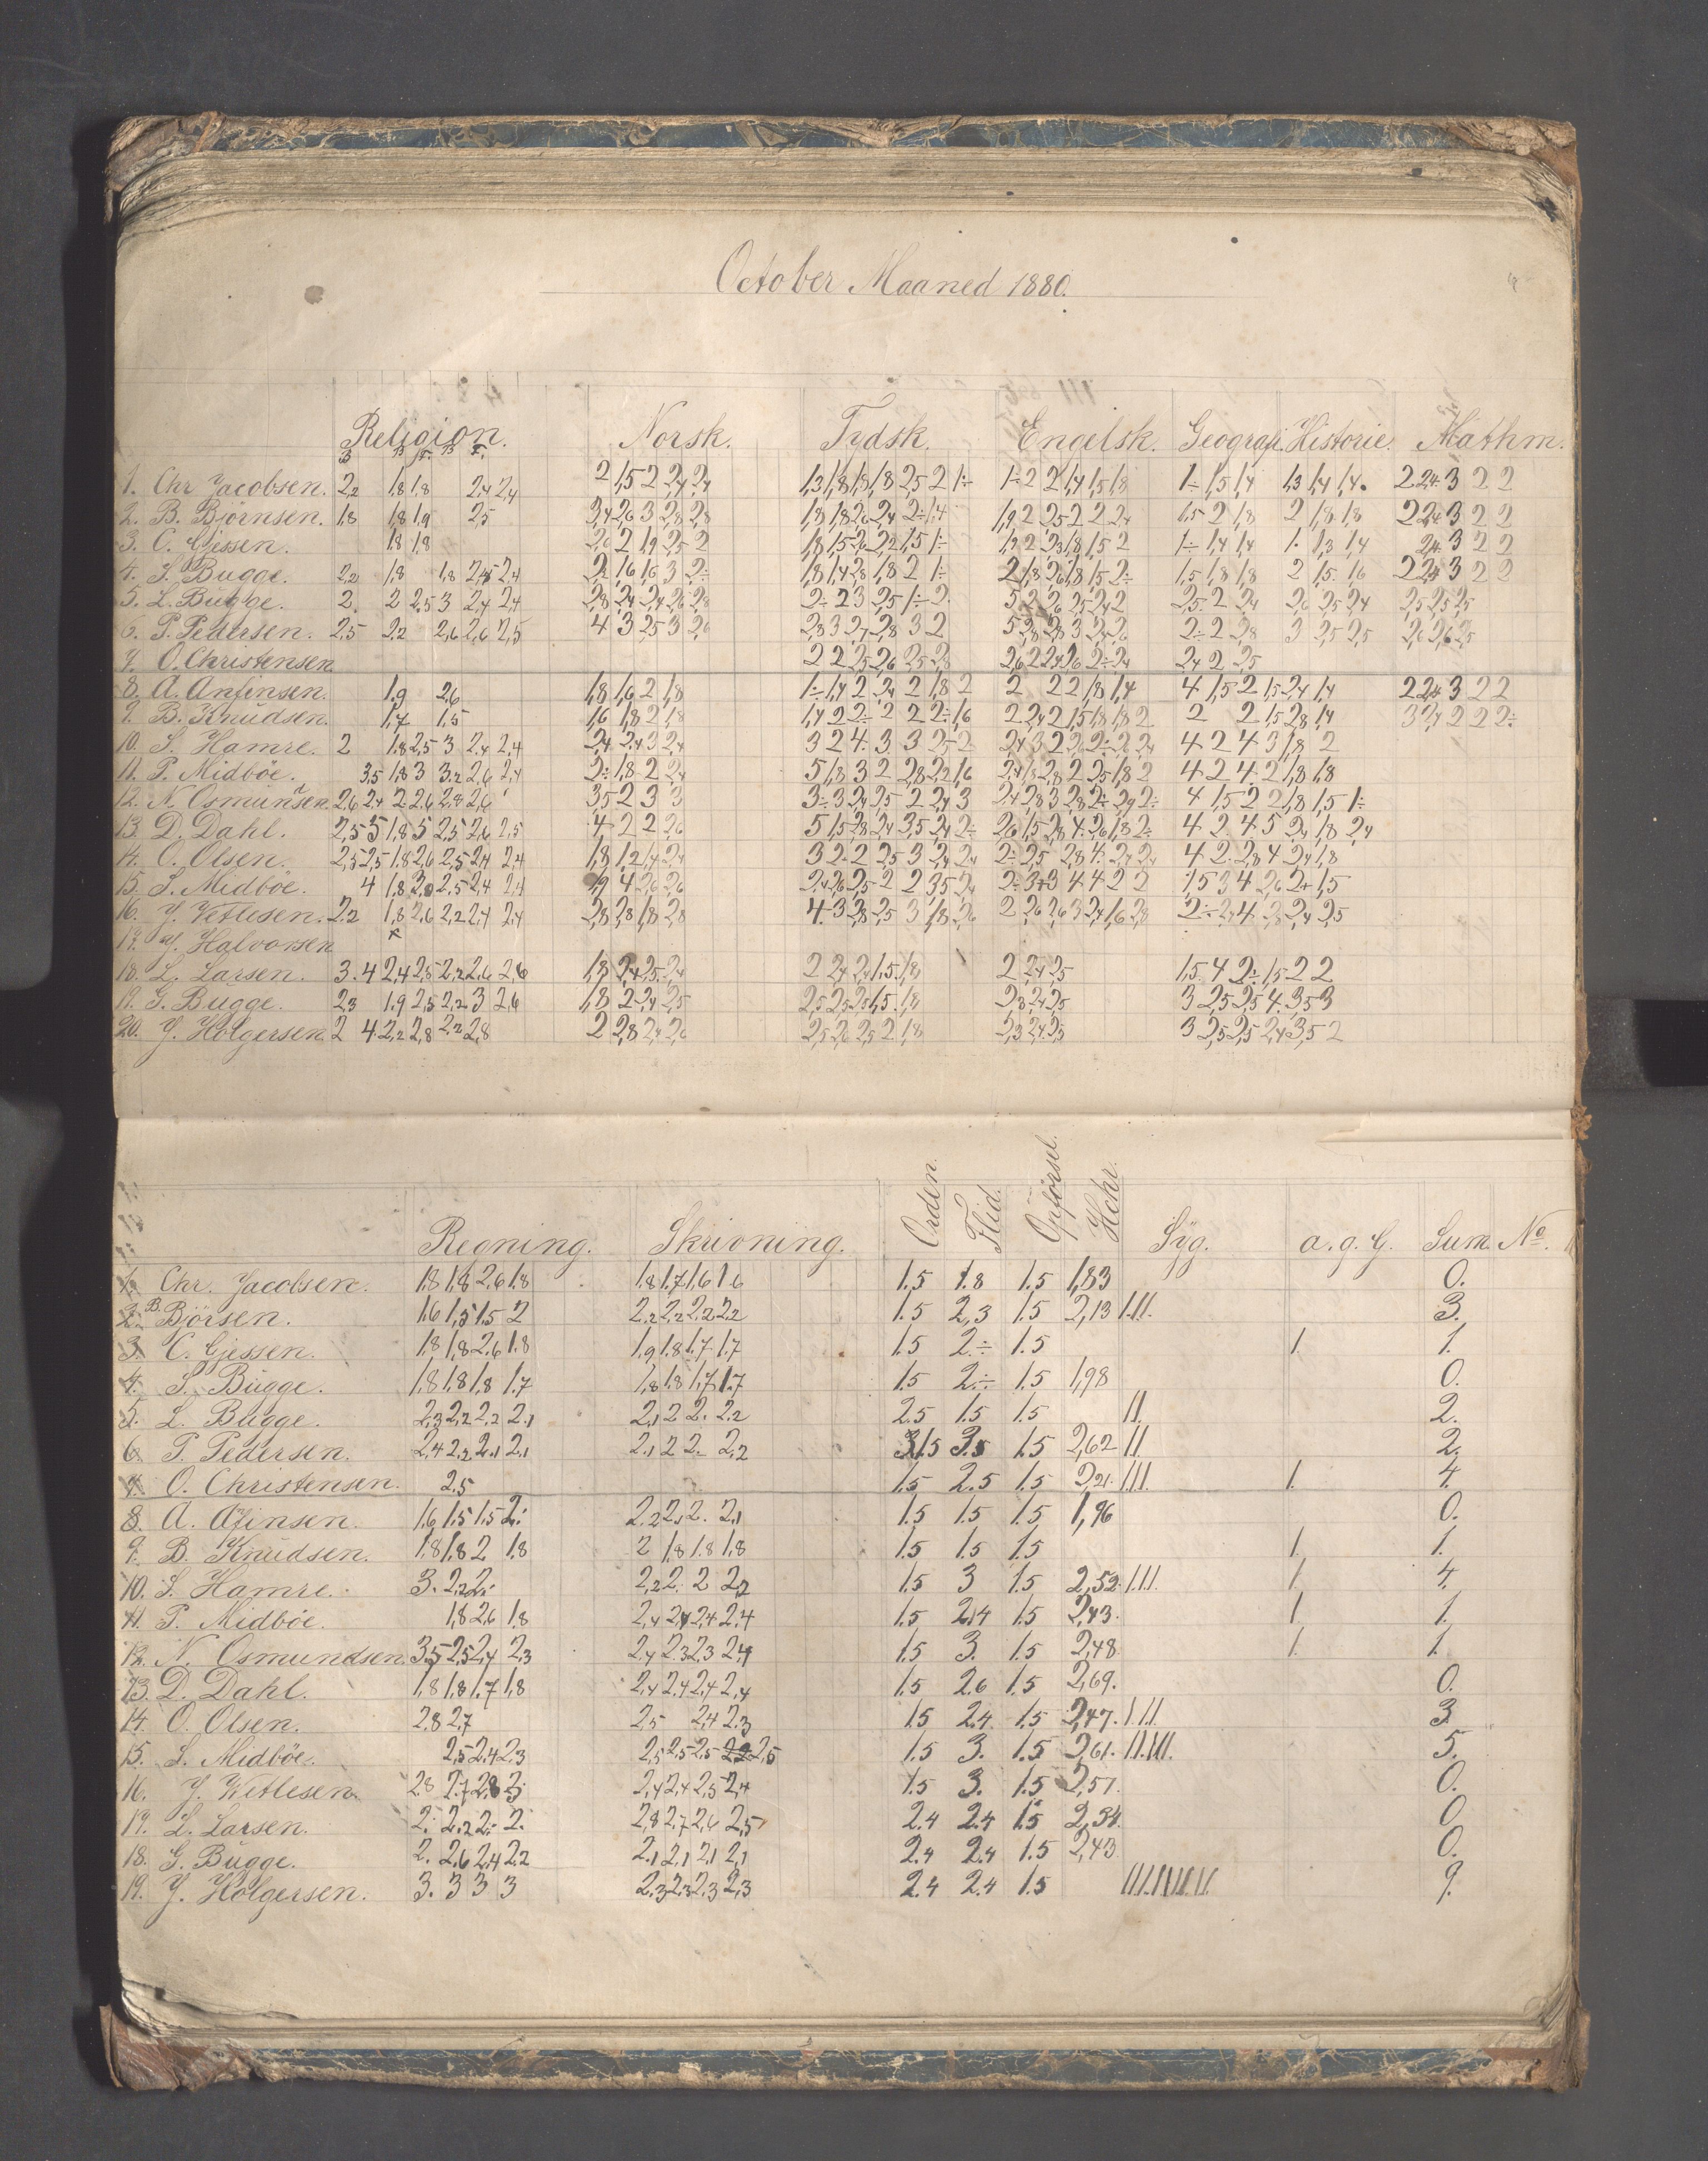 October Maaned 1880.
Religion. Norsk. Tydsk. Engelsk. Geografi. Historie. Mathm.
1. Chr Jacobsen. 2,2 1,8 1,8 2,4 2,4 2 1,5 2 2,4 2,4 1,3 1,8 1,8 1,8 2,5 2 1÷ 1÷ 2 2 1,4 1,5 1,8 1÷ 1,5 1,4 1,3 1,4 1,4. 2 2,4 3 2 2
2. B. Björnsen. 1,8 1,8 1,9 2,5 3,4 2,6 3 2,8 2,8 1,8 1,8 2,6 2,4 2÷ 1,4 1,9 2 2,5 2 2 2,4 1,5 2 1,8 2 1,8 1,8 2 2,4 3 2 2
3. C. Gjessen. 1,8 1,8 2,6 2 1,9 2,5 2 1÷ 1,4 1,4 1. 1,3 1,4 2,4 3 2 2
4. S. Bugge. 2,2 1,8 1,8 2,4 1,5 1,8 1,8 2 1,5 1,6 2 2,4 3 2 2
5. L. Bugge. 2. 2 2,5 3 2,4 2,4 2,8 2,4 2,4 2,6 2,8 2÷ 2 3 2,5 1÷ 2 2,5 2 2,4 2,6 2,5 2,4 2,5 2,5 2,5
6. P. Pedersen. 2,5 2,2 2,6 2,6 2,5 4 3 2,5 3 2,6 2,8 3 2,7 2,8 3 2 2÷ 2 2,8 3 2,5 2,5
7. O. Christensen 2 2 2,5 2,6 2,5 2,8 2,4 2 2,5
8. A. Anfinsen. 1,9 2,6 1,8 1,6 2 1,8 1÷ 1,4 2 2,4 2 1,8 2 2 2 2 1,8 1,4 4 1,5 2 1,5 2,4 1,4 2 2,4 3 2 2
9. B. Knudsen. 1,7 1,5 1,6 1,8 2 1,8 1,4 2 2÷ 2 2 2÷ 1,6 2 2,4 2 1,5 1,8 1,8 2 2 2 1,5 2,8 1,4 3 2,4 2 2 2÷
10. S. Hamre. 2 1,8 2,5 3 2,4 2,4 2,4 2,4 3 2,4 3 2 4. 3 3 2,5 2 4 2 4 3 1,8 2
11. P. Midböe. 3,5 1,8 3 3,2 2,6 2,4 2÷ 1,8 2 2,4 5 1,8 3 2 2,8 2,2 1,6 2,4 1,8 2,8 2 2,5 1,8 2 4 2 4 2 1,8 1,8
12. N. Osmundsen. 2,6 2,4 2 2,6 2,8 2,6 3,5 2 3 3 3÷ 3 2,4 2,5 2 2,4 3 2,4 2,8 3 2,8 2÷ 2,9 2÷ 4 1,5 2 2 1,8 1,5 1÷
13. D. Dahl. 2,5 5 1,8 5 2,5 2,6 2,5 4 2 2 2,6 5 1,5 2,8 2,4 3,5 2,4 2÷ 2,6 1,5 2,8 4 2,6 1,8 2÷ 4 2 4 5 2,4 1,8 2,4
14. O. Olsen. 2,5 2,5 1,8 2,6 2,5 2,4 2,4 1,8 1,2 1,4 2,4 3 2 2 2,5 3 2,4 2,4 4 2 2,8 4 2,4 1,8
15. S. Midböe. 4 1,8 3,0 2,5 2,4 2,4 1,9 4 2,6 2,6 2,4 2,6 2,5 2 2 3,5 2,4 1,5 3 4 2,6 2,4 1,5
16. J. Ketlesen. 2,2 1,8 2,6 2,2 2,4 2,4 2,8 2,8 1,8 2,8 4. 3 2,8 2,5 3 1,8 2,6 2 2,6 2,6 3 2,4 1,6 2,8 2÷ 2,4 4 2,8 2,4 2,5
17. J. Halvorsen
18. L. Larsen. 3. 4 2,4 2,5 2,2 2,6 2,6 1,8 2,4 2,5 2,4 2 2,4 2,4 1,5 1,8 2 2,4 2,5 1,5 4 2÷ 1,5 2 2
19. G. Bugge. 2,3 1,9 2,5 2,2 3 2,6 1,8 2 2,4 2,5 2,5 2,5 2,5 1,5 1,8 2,8 2,4 2,5 3 2,5 2,5 4. 3,5 3
20. J. Holgersen. 2 4 2,2 2,8 2,2 2,8 2 2,8 2,4 2,6 2,5 2,6 2,5 2 1,8 2,3 2,4 2,5 3 2,5 2,5 2,4 3,5 2
Regning. Skrivning. Orden. Flid. Opförsel. Syg. a. g. G. Sum. No.
1. Chr. Jacobsen. 1,8 1,8 2,6 1,8 1,8 1,7 1,6 1,6 1.5 1.8 1.5 1,83 0.
2. B. Björsen. 1,6 1,5 1,5 2 2,2 2,2 2,2 2,2 1.5 2,3 1.5 2,13 III. 3.
3. C. Gjessen. 1,8 1,8 2,6 1,8 1,9 1,8 1,7 1,7 1.5 2.÷ 1.5 1. 1.
4. S. Bugge. 1,8 1,8 1,8 1,7 1,8 1,8 1,7 1,7 1.5 2.÷ 1.5 1,98 0.
5. L. Bugge. 2,3 2,2 2,2 2,1 2,1 2 2. 2,2 2.5 1.5 1.5 II. 2.
6. P. Pedersen. 2,4 2,2 2,1 2,1 2,1 2 2. 2,2 3.5 1.5 2,62 II 2.
7. O. Christensen. 2,5 1.5 2.5 1.5 2,21. III. 1. 4.
8. A. Afinsen. 1,6 1,5 1,5 2. 2,2 2,1 2. 2,1 1.5 1.5 1.5 1,96 0.
9. B. Knudsen. 1,8 1,8 2 1,8 2 1,8 1,8 1,8 1.5 1.5 1.5 1. 1.
10. S. Hamre. 3. 2,2 2. 2,2 2. 2 2,2 1.5 3 1.5 2,52. III. 1. 4.
11. P. Midböe. 1,8 2,6 1,8 2,4 2,4 2,4 2,4 1.5 2.4 1.5 2,43. 1. 1.
12. N. Osmundsen. 3,5 2,5 2,4 2,3 2,4 2,3 2,3 2,4 1.5 3. 1.5 2,48 1. 1.
13. D. Dahl. 1,8 1,8 1,7 1,8 2,4 2,4 2,4 2,4 1.5 2.6 1.5 2,69. 0.
14. O. Olsen. 2,8 2,7 2,5 2,4 2,3 1.5 2.4 1.5 2,47. III. 3
15. S. Midböe. 2,5 2,4 2,3 2,5 2,5 2,5 2,5 1.5 3. 1.5 2,61. II.III. 5.
16. J. Ketlesen. 2,8 2,7 2,8 3. 2,4 2,4 2,5 2,4 1.5 3. 1.5 2,57. 0.
17. L. Larsen. 2. 2,2 2. 2. 2,8 2,7 2,6 2,5 2.4 2.4 1.5 2,34. 0
18. G. Bugge. 2. 2,6 2,4 2,2 2,1 2,1 2,1 2,1 2.4 2.4 1.5 2,43 0.
19. J. Holgersen. 3. 3 3 3 2,3 2,3 2,3 2,3 2.4 2.4 1.5 9.